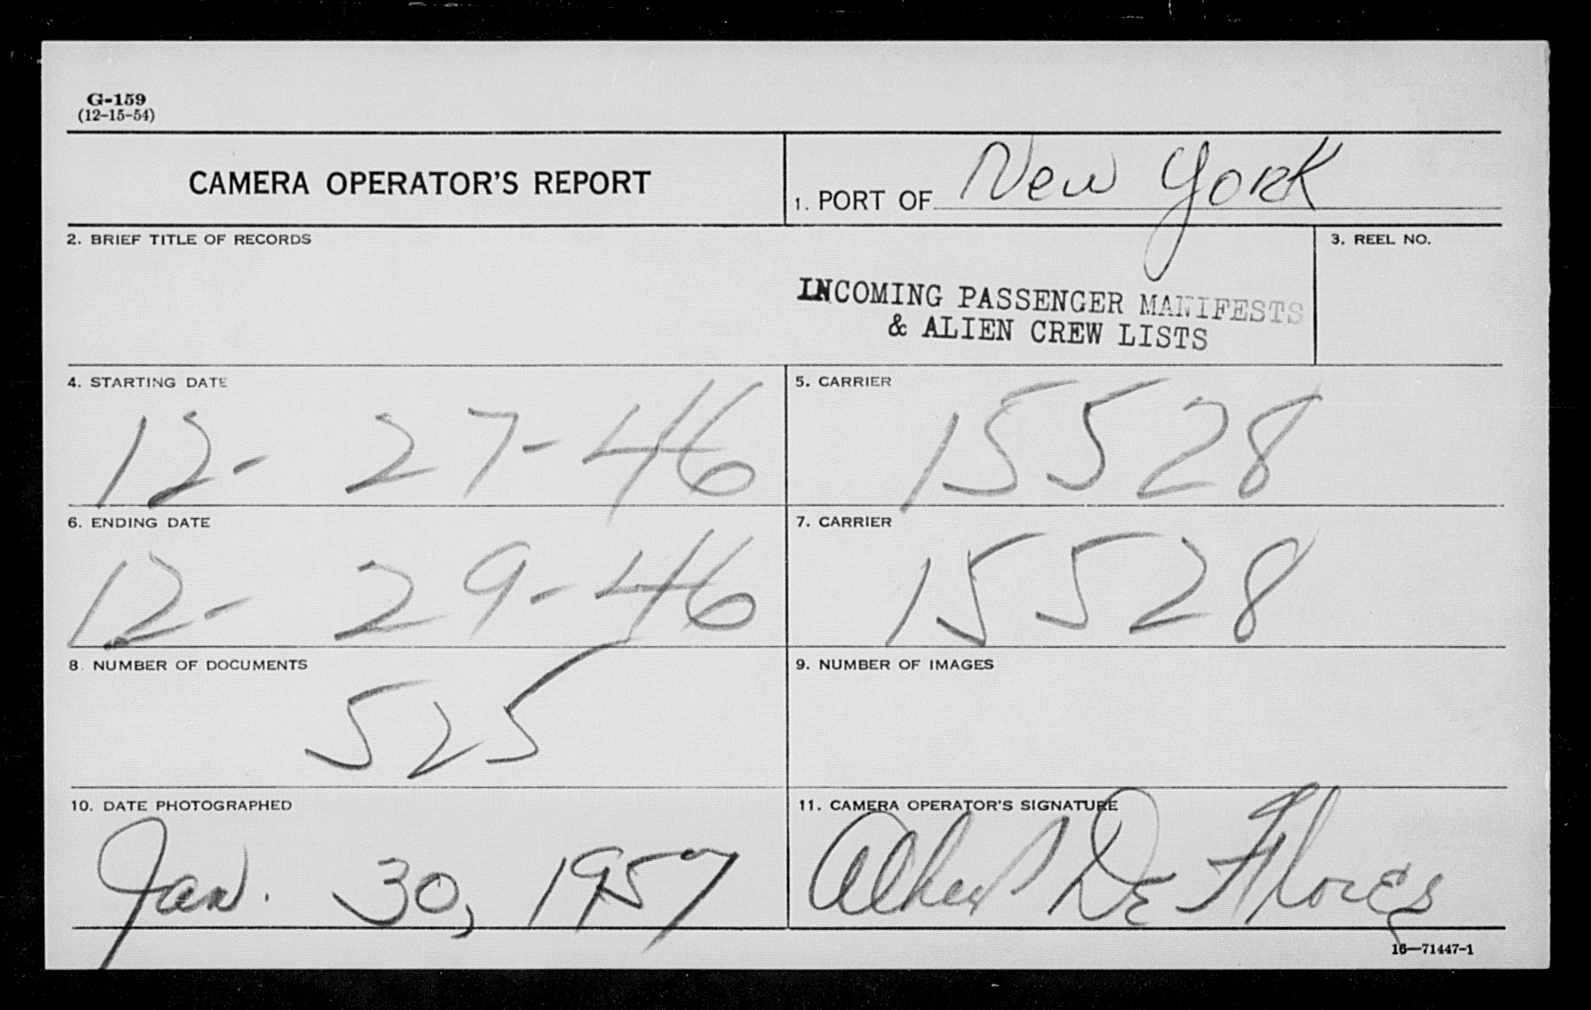 G-159
(12-15-54)
CAMERA OPERATOR'S REPORT
1. PORT OF New York
2. BRIEF TITLE OF RECORDS
INCOMING PASSENGER MANIFESTS
& ALIEN CREW LISTS
3. REEL NO.
4. STARTING DATE
12-27-46
5. CARRIER
15528
6. ENDING DATE
12-29-46
7. CARRIER
15528
8. NUMBER OF DOCUMENTS
525
9. NUMBER OF IMAGES
10. DATE PHOTOGRAPHED
Jan. 30, 1957
11. CAMERA OPERATOR'S SIGNATURE
Albert De Flores
16—71447-1